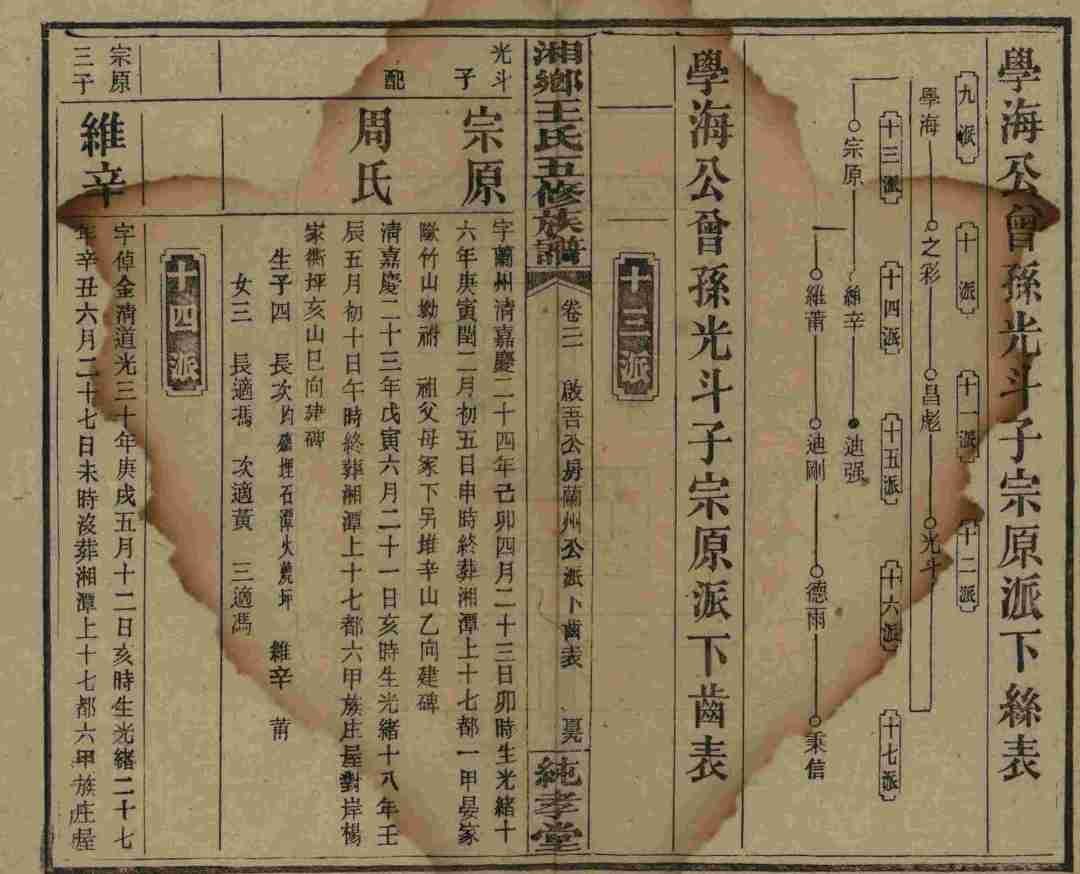 學海公曾孫光斗子宗原派下絲表
九派
十派
十一派
十二派
學海
之彩
昌彪
光斗
十三派
十四派
十五派
十六派
十七派
宗原
維辛
迪强
維莆
迪剛
德雨
秉信
學海公曾孫光斗子宗原派下齒表
十三派
湘鄉王氏五修族譜
卷三
啟吾公房蘭州公派下齒表
純孝堂
光斗子
宗原
字蘭州清嘉慶二十四年己卯四月二十三日卯時生光緒十
六年庚寅閏二月初五日申時終葬湘潭上十七都一甲晏家
竹山坳祔
祖父母冢下另堆辛山乙向建碑
配
周氏
清嘉慶二十三年戊寅六月二十一日亥時生光緒十八年壬
辰五月初十日午時終葬湘潭上十七都六甲族庄屋對岸楊
家衝坪亥山巳向建碑
生子四
長次均殤埋石潭火荒坪
維辛
莆
女三
長適馮
次適黃
三適馮
十四派
宗原三子
維辛
字倬金清道光三十年庚戌五月十二日亥時生光緒二十七
年辛丑六月二十七日未時沒葬湘潭上十七都六甲族庄屋